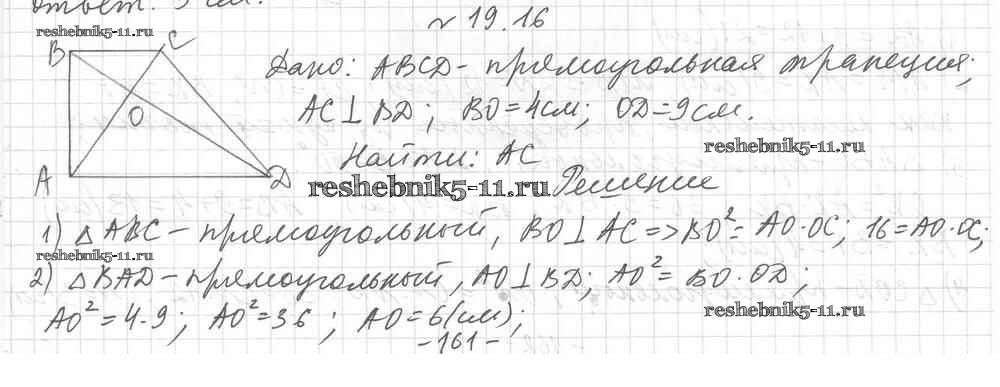 ответ: 9 см.
№ 19.16
reshebnik5-11.ru
B C
Дано: ABCD - прямоугольная трапеция;
AC ⊥ BD; BO = 4 см; OD = 9 см.
O
reshebnik5-11.ru
Найти: AC
A D
reshebnik5-11.ru
Решение
1) △ ABC - прямоугольный, BO ⊥ AC => BO² = AO·OC; 16 = AO·OC;
reshebnik5-11.ru
2) △ BAD - прямоугольный, AO ⊥ BD; AO² = BO·OD;
AO² = 4·9; AO² = 36; AO = 6 (см);
reshebnik5-11.ru
-161-